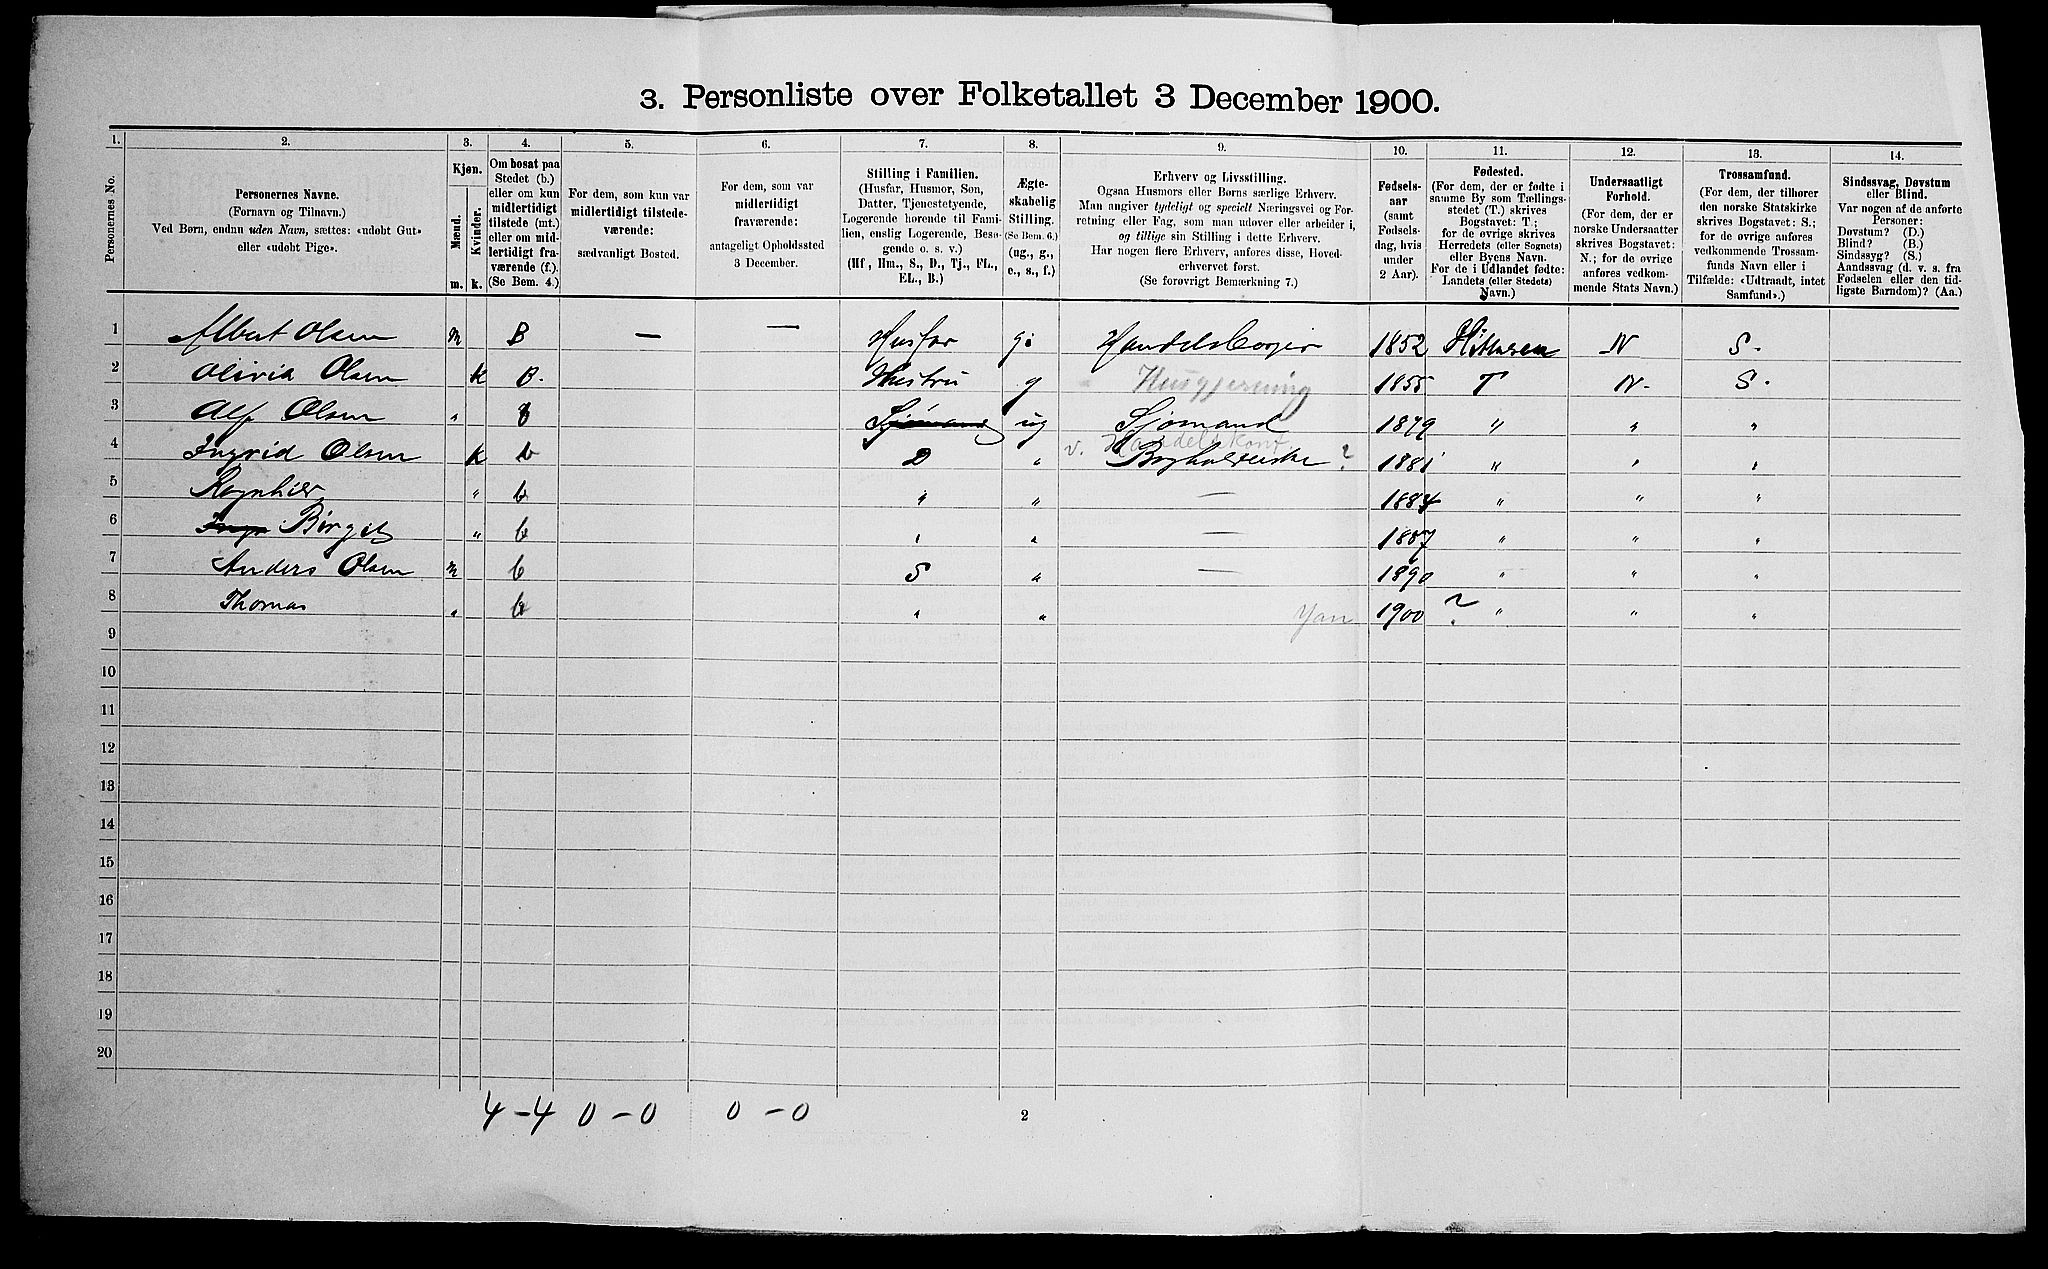 3. Personliste over Folketallet 3 December 1900.
1. 2. 3. 4. 5. 6. 7. 8. 9. 10. 11. 12. 13. 14.
Personernes No.
Personernes Navne.
(Fornavn og Tilnavn.)
Ved Børn, endnu uden Navn, sættes: «udøbt Gut»
eller «udøbt Pige».
Kjøn.
Mænd.
Kvinder.
m. k.
Om bosat paa
Stedet (b.)
eller om kun
midlertidigt
tilstede (mt.)
eller om mid-
lertidigt fra-
værende (f.).
(Se Bem. 4.)
For dem, som kun var
midlertidigt tilstede-
værende:
sædvanligt Bosted.
For dem, som var
midlertidigt
fraværende:
antageligt Opholdssted
3 December.
Stilling i Familien.
(Husfar, Husmor, Søn,
Datter, Tjenestetyende,
Logerende hørende til Fami-
lien, enslig Logerende, Besø-
gende o. s. v.)
(Hf , Hm., S., D., Tj., FL.,
EL., B.)
Ægte-
skabelig
Stilling.
(Se Bem. 6.)
(ug., g.,
e., s., f.)
Erhverv og Livsstilling.
Ogsaa Husmors eller Børns særlige Erhverv.
Man angiver tydeligt og specielt Næringsvei og For-
retning eller Fag, som man udøver eller arbeider i,
og tillige sin Stilling i dette Erhverv.
Har nogen flere Erhverv, anføres disse, Hoved-
erhvervet først.
(Se forøvrigt Bemærkning 7.)
Fødsels-
aar
(samt
Fødsels-
dag, hvis
under
2 Aar).
Fødested.
(For dem, der er fødte i
samme By som Tællings-
stedet (T.) skrives
Bogstavet: T.;
for de øvrige skrives
Herredets (eller Sognets)
eller Byens Navn.
For de i Udlandet fødte:
Landets (eller Stedets)
Navn.)
Undersaatligt
Forhold.
(For dem, der er
norske Undersaatter
skrives Bogstavet:
N.; for de øvrige
anføres vedkom-
mende Stats Navn.)
Trossamfund.
(For dem, der tilhører
den norske Statskirke
skrives Bogstavet: S.;
for de øvrige anføres
vedkommende Trossam-
funds Navn eller i
Tilfælde: «Udtraadt, intet
Samfund».)
Sindssvag, Døvstum
eller Blind.
Var nogen af de anførte
Personer:
Døvstum? (D.)
Blind? (B.)
Sindssyg? (S.)
Aandssvag (d. v. s. fra
Fødselen eller den tid-
ligste Barndom)? (Aa.)
1 Albert Olsen m B — — Husfar g. Handelsborger 1852 Hitterøen N S.
2 Olivia Olsen K B. Hustru g Husgjerning 1855 T N. S.
3 Alf Olsen " B Sjømand ug Sjømand 1879 " " "
v. Handelskont
4 Ingrid Olsen K b D " Bogholderske ? 1881 " " "
5 Ragnhild " b " " — 1884 " " "
6 Inga Birgit " b " " — 1887 " " "
7 Anders Olsen m b S " — 1890 " " "
8 Thomas " b " " Jan 1900 ? " " "
9
10
11
12
13
14
15
16
17
18
19
20
4 – 4 0 – 0 0 – 0
2